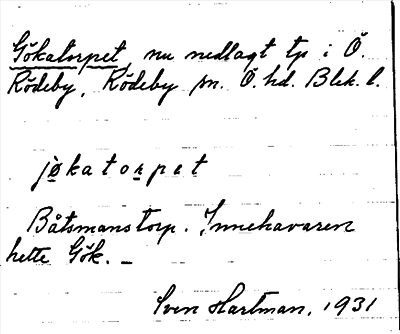 Gökatorpet, nu nedlagt tp i Ö.
Rödeby, Rödeby sn. Ö. hd. Blek. l.
jøkatorpet
Båtsmanstorp. Innehavaren
hette Gök. –
Sven Hartman, 1931